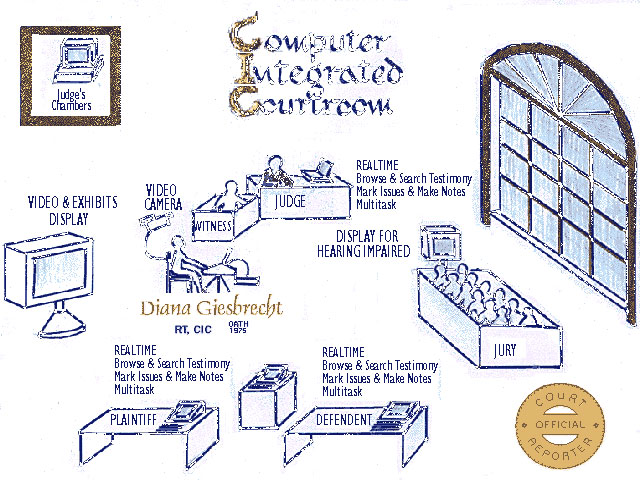 Computer
Integrated
Courtroom
Judge's
Chambers
VIDEO & EXHIBITS
DISPLAY
VIDEO
CAMERA
WITNESS
JUDGE
REALTIME
Browse & Search Testimony
Mark Issues & Make Notes
Multitask
DISPLAY FOR
HEARING IMPAIRED
Diana Giesbrecht
RT, CIC
OATH
1975
JURY
REALTIME
Browse & Search Testimony
Mark Issues & Make Notes
Multitask
PLAINTIFF
REALTIME
Browse & Search Testimony
Mark Issues & Make Notes
Multitask
DEFENDENT
COURT
OFFICIAL
REPORTER